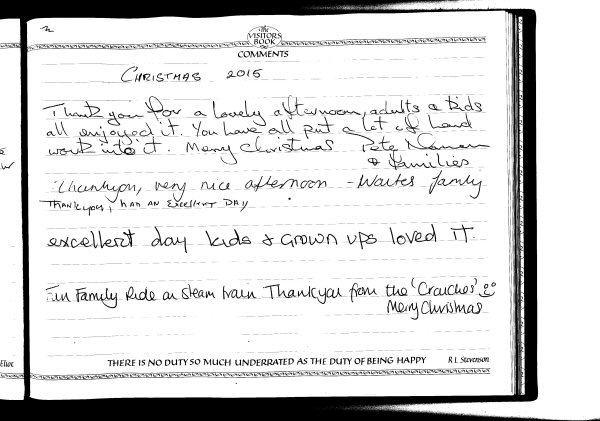 The
VISITORS
BOOK
COMMENTS
CHRISTMAS 2015
Thank you for a lovely afternoon, adults & kids
all enjoyed it. You have all put a lot of hard
work into it. Merry Christmas Pete
& families
Thankyou, very nice afternoon - Waites family
THANKYOU, HAD AN EXCELLENT DAY
excellent day kids & GROWN UPS loved IT
Fun Family Ride on Steam train Thankyou from the 'Crouches'
Merry Christmas
THERE IS NO DUTY SO MUCH UNDERRATED AS THE DUTY OF BEING HAPPY R L Stevenson